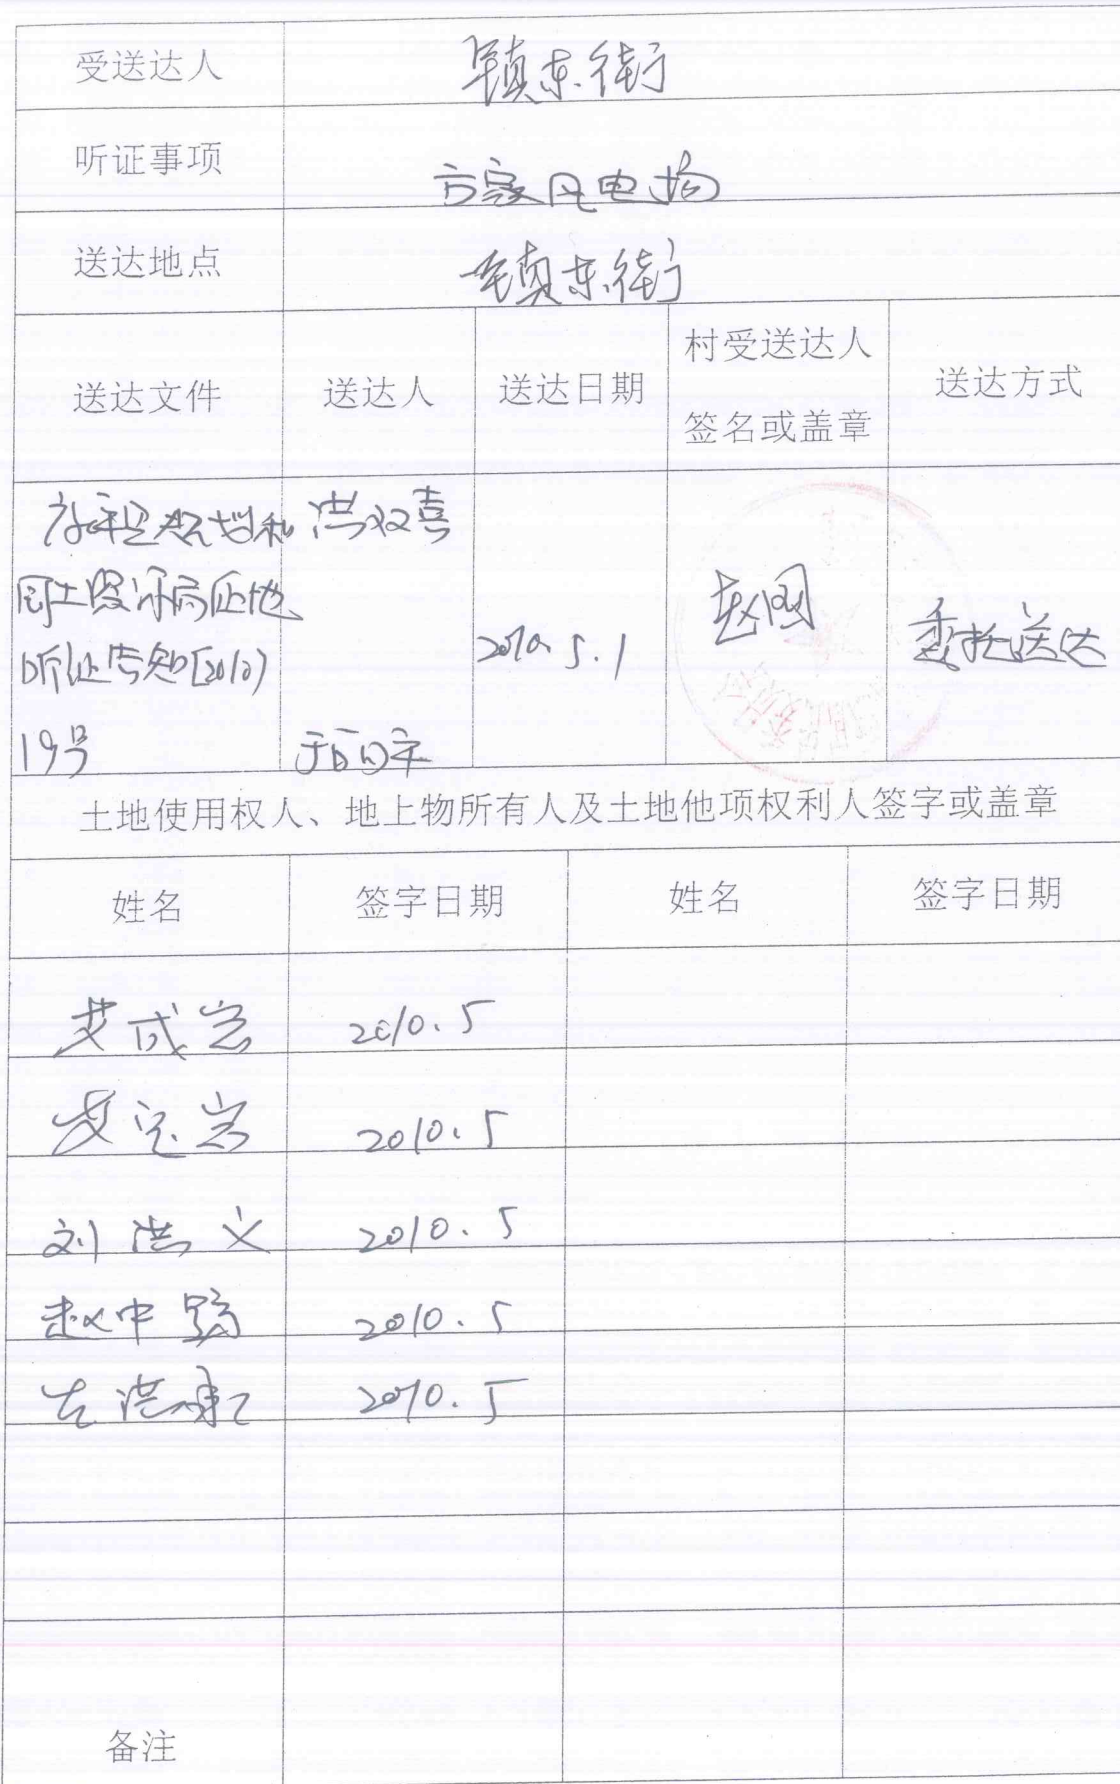 受送达人 镇东街
听证事项 方家风电场
送达地点 镇东街
送达文件 送达人 送达日期 村受送达人签名或盖章 送达方式
规划和 洪双喜
国土资源局征地
听证告知[2010] 2010.5.1 委托送达
19号
土地使用权人、地上物所有人及土地他项权利人签字或盖章
姓名 签字日期 姓名 签字日期
2010.5
2010.5
刘洪义 2010.5
赵中 2010.5
2010.5
备注